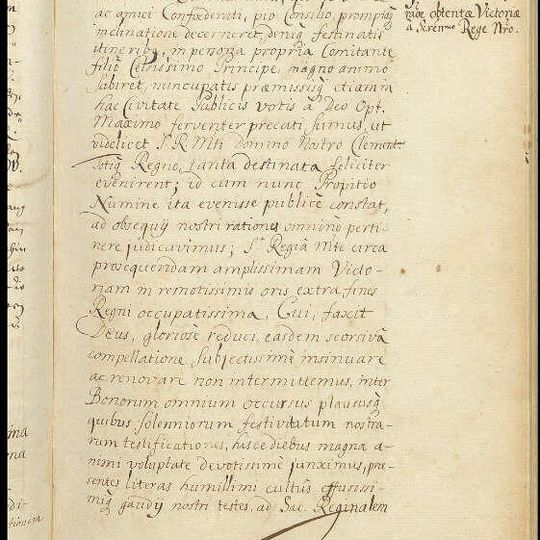 ac amici Confœderati, pio Consilio, promptaq
inclinatione decerneret, deniq festinatis
itineribq, in persona propria Comitante
filio Celsissimo Principe, magno animo
Subiret, nuncupatis præmissisq etiam in
hac Civitate Publicis votis à Deo Opt.
Maximo ferventer precati sumus, ut
videlicet S. R. Mti Domino Nostro Clement.mo
totiq Regno, tanta destinata feliciter
evenirent; id cum nunc Propitio
Numine ita evenisse publicè constat,
ad obsequij nostri rationes omninò perti-
nere judicavimus; S.æ Regiæ Mti circa
prosequendam amplissimam Victo-
riam in remotissimis oris extra fines
Regni occupatissimæ, Cui, faxit
Deus, gloriosè reduci, easdem seorsivâ
compellatione subjectissimè insinuare
ac renovare non intermittemus, inter
Bonorum omnium occursus plaususq
quibus solenniorum festivitatum nostra-
rum testificationes, hisce diebus magna a-
nimi voluptate devotissimè junximus, præ-
sentes literas humillimi cultus effusissi-
miq gaudij nostri testes, ad Sac. Reginalem
obtentæ Victoriæ
à Seren.mo Rege Nro.